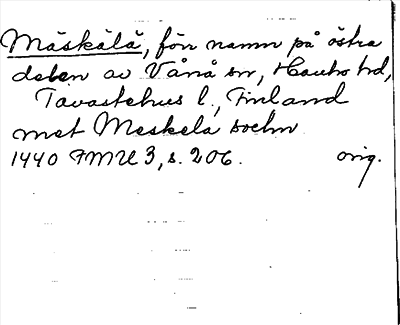 Mäskälä, förr namn på östra
delen av Vånå sn, Hauho hd,
Tavastehus l., Finland
mot Meskela sochn
1440 FMU 3, s. 206. orig.